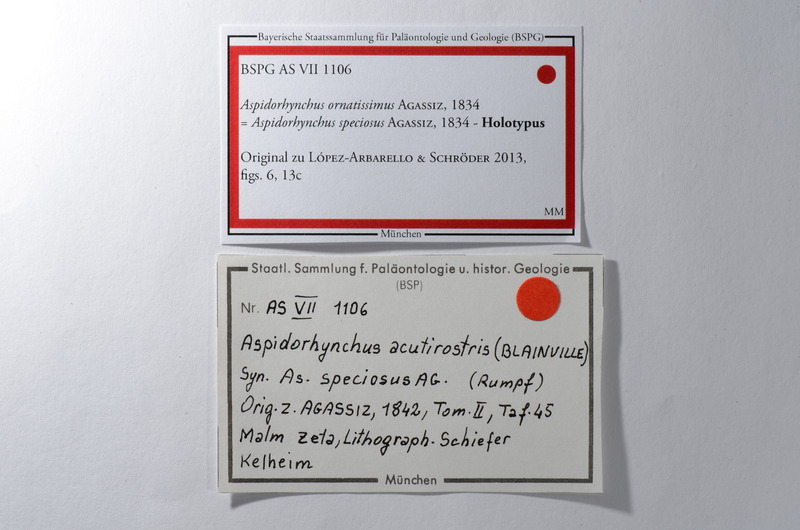 Bayerische Staatssammlung für Paläontologie und Geologie (BSPG)
BSPG AS VII 1106
Aspidorhynchus ornatissimus AGASSIZ, 1834
= Aspidorhynchus speciosus AGASSIZ, 1834 - Holotypus
Original zu LÓPEZ-ARBARELLO & SCHRÖDER 2013,
figs. 6, 13c
MM
München
Staatl. Sammlung f. Paläontologie u. histor. Geologie
(BSP)
Nr. AS VII 1106
Aspidorhynchus acutirostris (BLAINVILLE)
Syn. As. speciosus AG. (Rumpf)
Orig. z. AGASSIZ, 1842, Tom. II, Taf. 45
Malm zeta, Lithograph. Schiefer
Kelheim
München